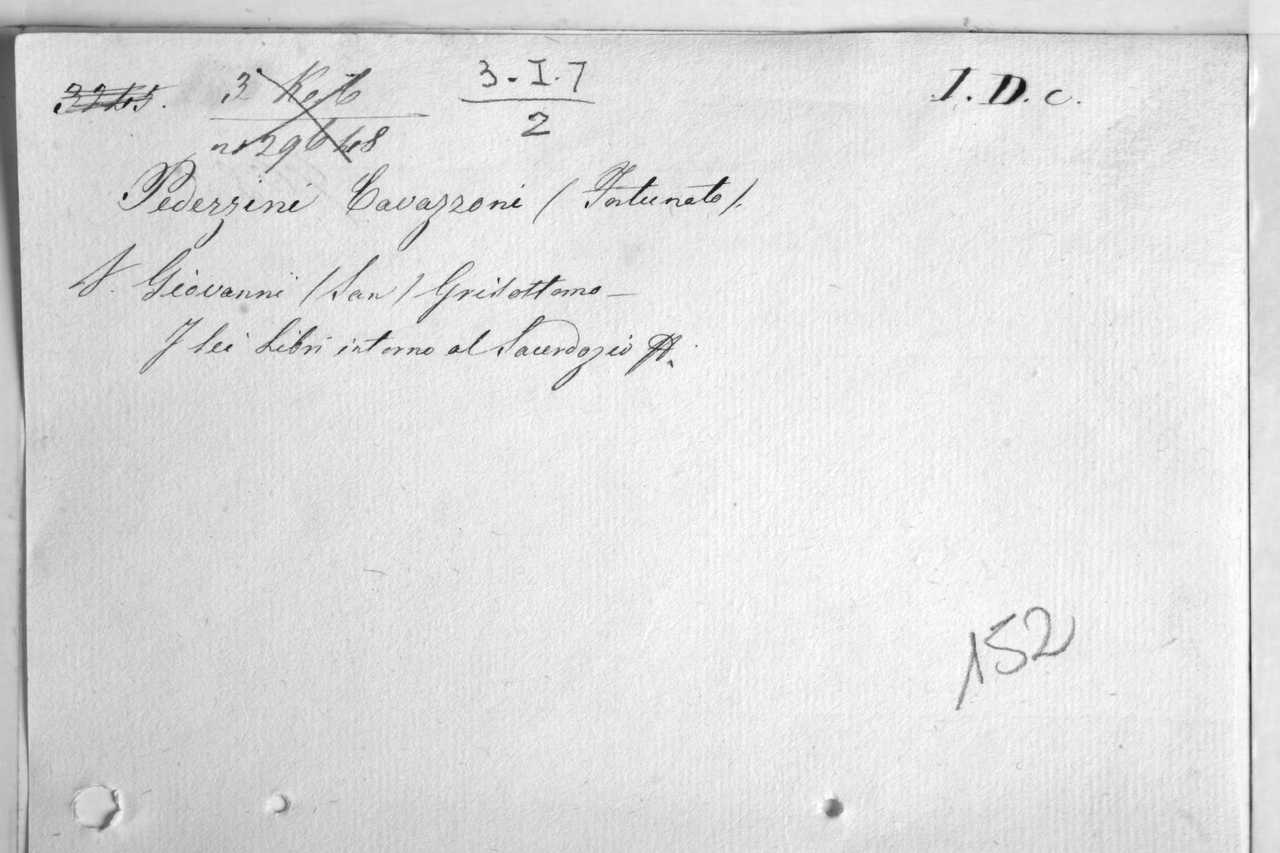 3245. 3 K.6 3-I.7 I.D.c.
no 29648 2
Pederzini Cavazzoni (Fortunato).
V. Giovanni (San) Grisostomo –
I sei libri intorno al Sacerdozio
152